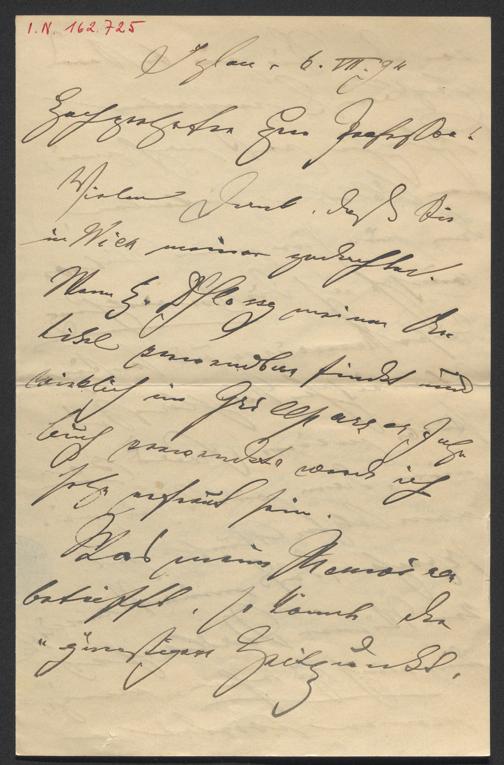 I.N. 162.725
Iglau. 6. VII. 94
Hochgeehrter Herr Professor!
Vielen Dank, daß Sie
in Wien meiner gedachten.
Wenn H. Glossy meinen Ar-
tikel verwendbar findet und
wirklich im Grillparzer Jahr-
buch verwendet werde ich
sehr erfreut sein.
Was meine Memoiren
betrifft, so kommt der
"günstigere Zeitpunkt,